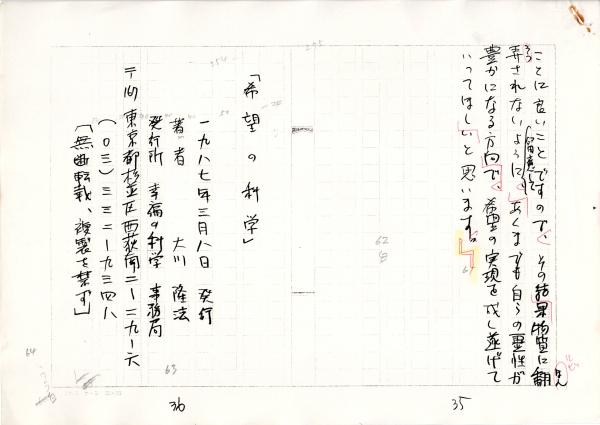 ことに良いことですので、その結果物質に翻
弄されないように留意して、あくまでも自らの霊性が
豊かになる方向で、希望の実現を成し遂げて
いってほしいと思います。
35
「希望の科学」
一九八七年三月八日 発行
著者 大川 隆法
発行所 幸福の科学 事務局
〒167 東京都杉並区西荻南二ー二九ー六
(〇三)三三二ー九三四八
「無断転載、複製を禁ず」
36
62
63
64
254
295